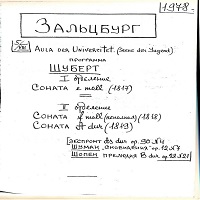 1978.
ЗАЛЬЦБУРГ
5/VIII AULA DER UNIVERSITET. (Szene der Jugend)
ПРОГРАММА
ШУБЕРТ
I отделение
СОНАТА e moll (1817)
II отделение
СОНАТА f moll (1818)
СОНАТА A dur (1819)
ЭКСПРОМТ As dur op. 90 №4
ШУМАН
ШОПЕН ПРЕЛЮДИЯ B dur op. 28 №21